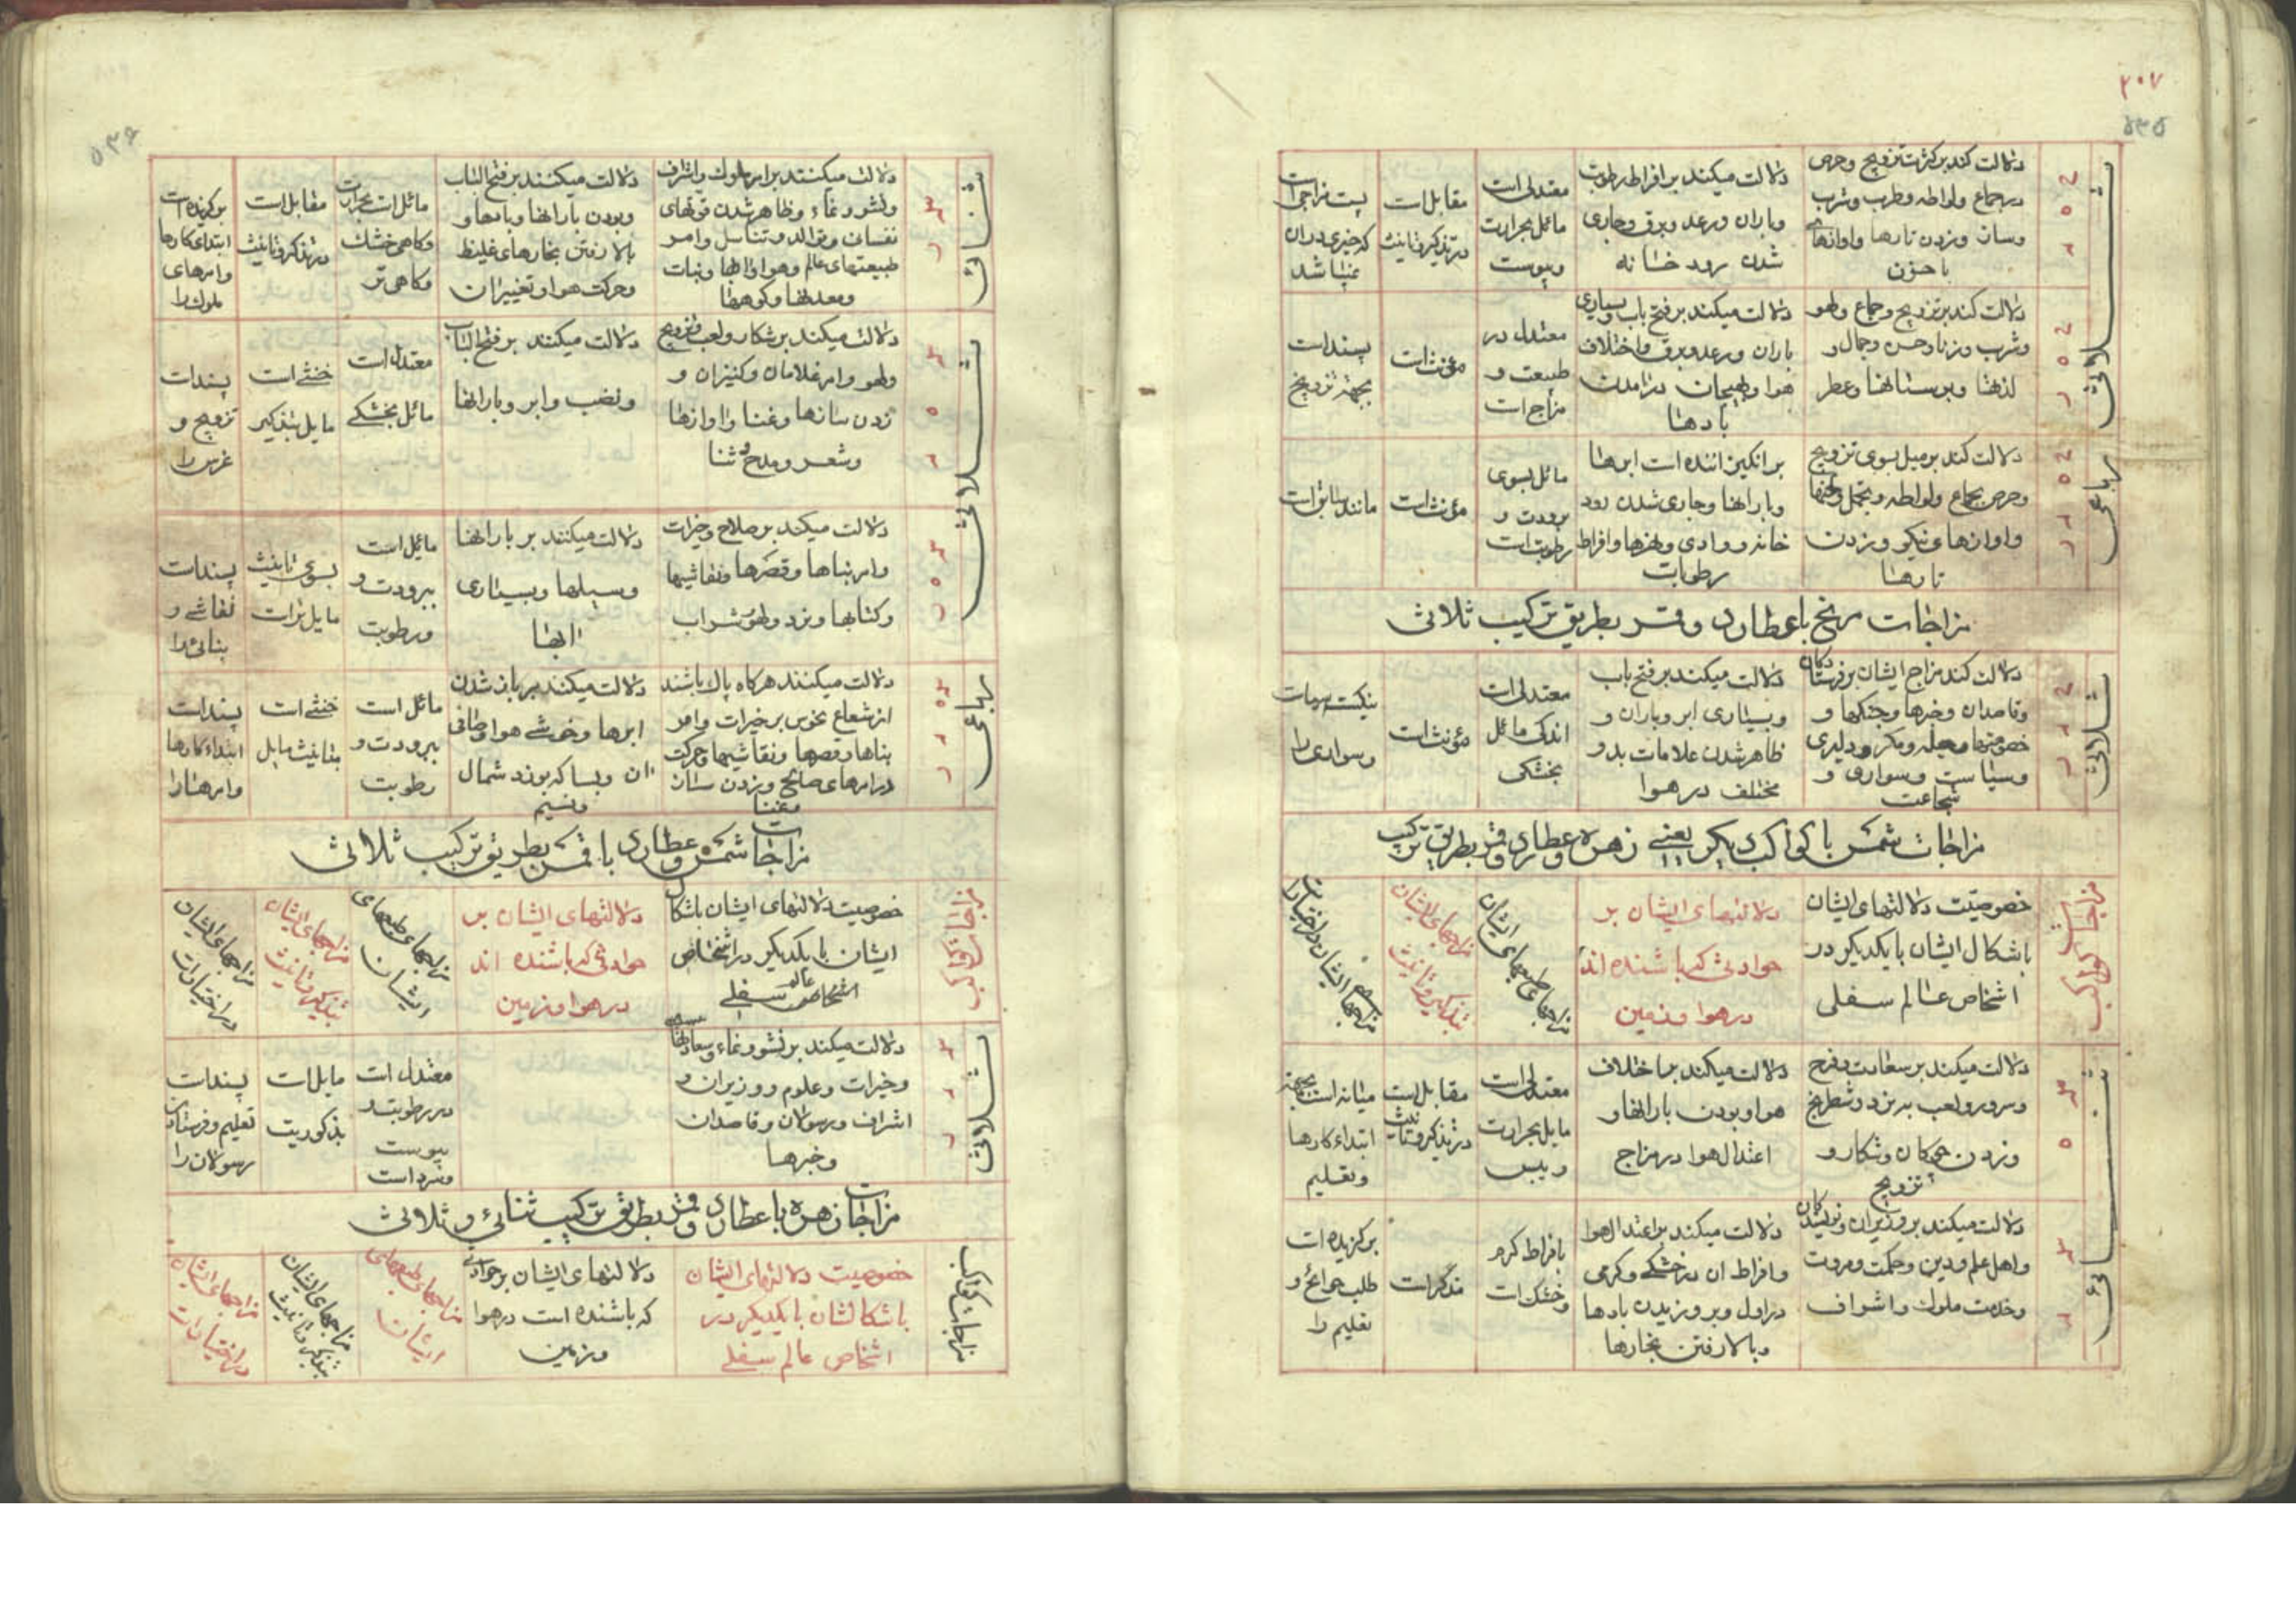 ۲۰۷
۵۳۵
ثلاثی
ح ه د
دلالت کند بر کثرت تزویج و حرص
در جماع و لواطه و طرب و شرب
وساز و زدن تارها و اوازهای
با حزن
دلالت میکند بر افراط رطوبت
و باران و رعد و برق و جاری
شدن رود خانه
معتدل است
مائل بحرارت
ویبوست
مقابل است
در تذکیر و تانیث
پست مزاجی است
که خیری در ان
نمیباشد
ح ه ر
دلالت کند بر تزویج و جماع و لهو
وشرب و زنا و حسن و جمال و
لذتها و بوستانها و عطر
دلالت میکند بر فتح باب و بسیاری
باران و رعد و برق و اختلاف
هوا و هیجان در امدن
بادها
معتدل در
طبیعت و
مزاج است
مؤنث است
پسند است
بجهة تزویج
رباعی
ح ه د ر
دلالت کند بر میل بسوی تزویج
وحرص بجماع و لواطه و تجمل و لحنها
واوازهای نیکو و زدن
تارها
بر انگیزاننده است ابرها
وبارانها و جاری شدن رود
خانه و وادی و نهرها و افراط
رطوبات
مائل بسوی
برودت و
رطوبت است
مؤنث است
مانند سابق است
مزاجات مریخ با عطارد و قمر بطریق ترکیب ثلاثی
ثلاثی
ح د ر
دلالت کند مزاج ایشان بر فرستادکان
وقاصدان و خبرها و جنکها و
خصومتها و حیله و مکر و دلیری
وسیاست و سواری و
شجاعت
دلالت میکند بر فتح باب
وبسیاری ابر و باران و
ظاهر شدن علامات بد و
مختلف در هوا
معتدل است
اندکی مائل
بخشکی
مؤنث است
نیکست مهمات
وسواری را
مزاجات شمس با کواکب دیکر یعنی زهره و عطارد و قمر بطریق ترکیب
مزاجهای کواکب
خصوصیت دلالتهای ایشان
باشکال ایشان با یکدیکر در
اشخاص عالم سفلی
دلالتهای ایشان بر
حوادثی که باشنده اند
در هوا و زمین
مزاجهای طبیعهای ایشان
مزاجهای ایشان
بتذکیر و تانیث
مزاجهای ایشان در اختیارات
ثنائی
س ه
دلالت میکند بر سعادت و فرح
وسرور و لعب به نرد و شطرنج
وزدن چوکان و شکار و
تزویج
دلالت میکند بر اختلاف
هوا و بودن بارانها و
اعتدال هوا در مزاج
معتدل است
مایل بحرارت
ویبس
مقابل است
در تذکیر و تانیث
میانه است بجهة
ابتداء کارها
وتعلیم
س د
دلالت میکند بر وزیران و نویسندکان
واهل علم و دین و حکمت و مروت
وخدمت ملوک و اشراف
دلالت میکند بر اعتدال هوا
وافراط ان در خشکی و کرمی
در اول و بر وزیدن بادها
وبالا رفتن بخارها
بافراط کرم
وخشک است
مذکر است
برکزیده است
طلب حوائج و
تعلیم را
۵۳۶
ثنائی
س ر
دلالت میکند بر امر ملوک و اشراف
ونشو و نماء و ظاهر شدن قوتهای
نفسانی و توالد و تناسل و امر
طبیعتهای عالم و هوا و ابها و نبات
ومعدنها و کوهها
دلالت میکنند بر فتح الباب
وبودن بارانها و بادها و
بالا رفتن بخارهای غلیظ
وحرکت هوا و تغییر ان
مائل است بحرارت
وکاهی خشک
وکاهی تر
مقابل است
در تذکیر و تانیث
برکزیده است
ابتدای کارها
وامرهای
ملوک را
ثلاثی
س ه د
دلالت میکند بر شکار و لعب و تزویج
ولهو و امر غلامان و کنیزان و
زدن سازها و غنا و اوازها
وشعر و مدح و ثنا
دلالت میکنند بر فتح الباب
و خصب و ابر و بارانها
معتدل است
مائل بخشکی
خنثی است
مایل بتذکیر
پسند است
تزویج و
غرس را
س ه ر
دلالت میکند بر صلاح و خیرات
وامر بناها و قصرها و نقاشیها
وکتابها و نرد و لهو شراب
دلالت میکنند بر بارانها
وسیلها و بسیاری
ابها
مائل است
ببرودت و
ورطوبت
بسوی تانیث
مایل تر است
پسند است
نقاشی و
بنائی را
رباعی
س ه د ر
دلالت میکنند هرکاه پاک باشند
از شعاع نحوس بر خیرات و امر
بناها و قصرها و نقاشیها و حرکت
در امرهای صالح و زدن ساز
وغنا
دلالت میکنند بر باز شدن
ابرها و خوشی هوا و صافی
ان و بسا که بوزد شمال
ونسیم
مائل است
ببرودت و
رطوبت
خنثی است
بتانیث مایل
پسند است
ابتداء کارها
وامرها را
مزاجات شمس و عطارد با قمر بطریق ترکیب ثلاثی
مزاجات کواکب
خصوصیت دلالتهای ایشان باشکال
ایشان با یکدیکر در اشخاص
اشخاص عالم سفلی
دلالتهای ایشان بر
حوادثی که باشنده اند
در هوا و زمین
مزاجهای طبیعهای
ایشان
مزاجهای ایشان
بتذکیر و تانیث
مزاجهای ایشان
در اختیارات
ثلاثی
س د ر
دلالت میکند بر نشو و نماء و سعادتها
وخیرات و علوم و وزیران و
اشراف و رسولان و قاصدان
وخبرها
معتدل است
در رطوبت و
یبوست
وسرد است
مایل است
بذکوریت
پسند است
تعلیم و فرستادن
رسولان را
مزاجات زهره با عطارد و قمر بطریق ترکیب ثنائی و ثلاثی
مزاجات کواکب
خصوصیت دلالتهای ایشان
باشکالشان با یکدیکر در
اشخاص عالم سفلی
دلالتهای ایشان بر حوادثی
که باشنده است در هوا
وزمین
مزاجهای طبیعهای
ایشان
مزاجهای ایشان
بتذکیر و تانیث
مزاجهای ایشان
در اختیارات